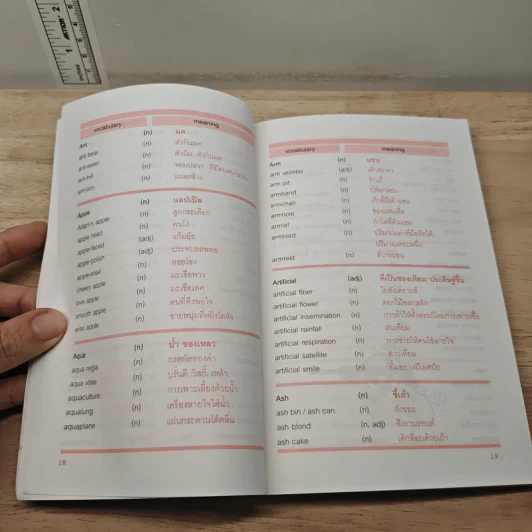 vocabulary meaning
Ant (n) มด
ant bear (n) ตัวกินมด
ant-eater (n) ตัวนิ่ม, ตัวกินมด
ant-hill (n) จอมปลวก,
ant-lion (n) แมลงช้าง
Apple (n) แอปเปิล
Adam's apple (n) ลูกกระเดือก
apple head (n) คนโง่
apple-faced (adj) แก้มยุ้ย
apple-polish (adj) ประจบสอพลอ
apple-snail (n) หอยโข่ง
cherry apple (n) มะเขือพวง
love apple (n) มะเขือเทศ
smooth apple (n) คนที่พึงพอใจ
wise apple (n) ชายหนุ่มที่หยิ่งโอหัง
Aqua (n) น้ำ ของเหลว
aqua regia (n) กรดกัดทองคำ
aqua vitae (n) บรั่นดี, วิสกี้, เหล้า
aquaculture (n) การเพาะเลี้ยงด้วยน้ำ
aqualung (n) เครื่องหายใจใต้น้ำ
aquaplane (n) แผ่นกระดานโต้คลื่น
18
vocabulary meaning
Arm (n) แขน
arm akimbo (adj) เท้าสะเอว
arm pit (n) รักแร้
armband (n) ปลอกแขน
armchair (n) เก้าอี้มีเท้าแขน
armhole (n) ช่องแขนเสื้อ
armlet (n) กำไลที่ต้นแขน
armload (n) ปริมาณเท่าที่มือถือได้
ปริมาณหอบหนึ่ง
armrest (n) ที่วางแขน
Artificial (adj) ที่เป็นของเทียม ประดิษฐ์ขึ้น
artificial fiber (n) ใยสังเคราะห์
artificial flower (n) ดอกไม้พลาสติก
artificial insemination (n) การทำให้ตั้งครรภ์โดยการผสมเชื้อ
artificial rainfall (n) ฝนเทียม
artificial respiration (n) การช่วยให้คนไข้หายใจ
artificial satellite (n) ดาวเทียม
artificial smile (n) ยิ้มอย่างมีเลศนัย
Ash (n) ขี้เถ้า
ash bin / ash can (n) ถังขยะ
ash blond (n, adj) สีเทาบรอนด์
ash cake (n) เค้กที่อบด้วยเถ้า
19
ACTION
1
2